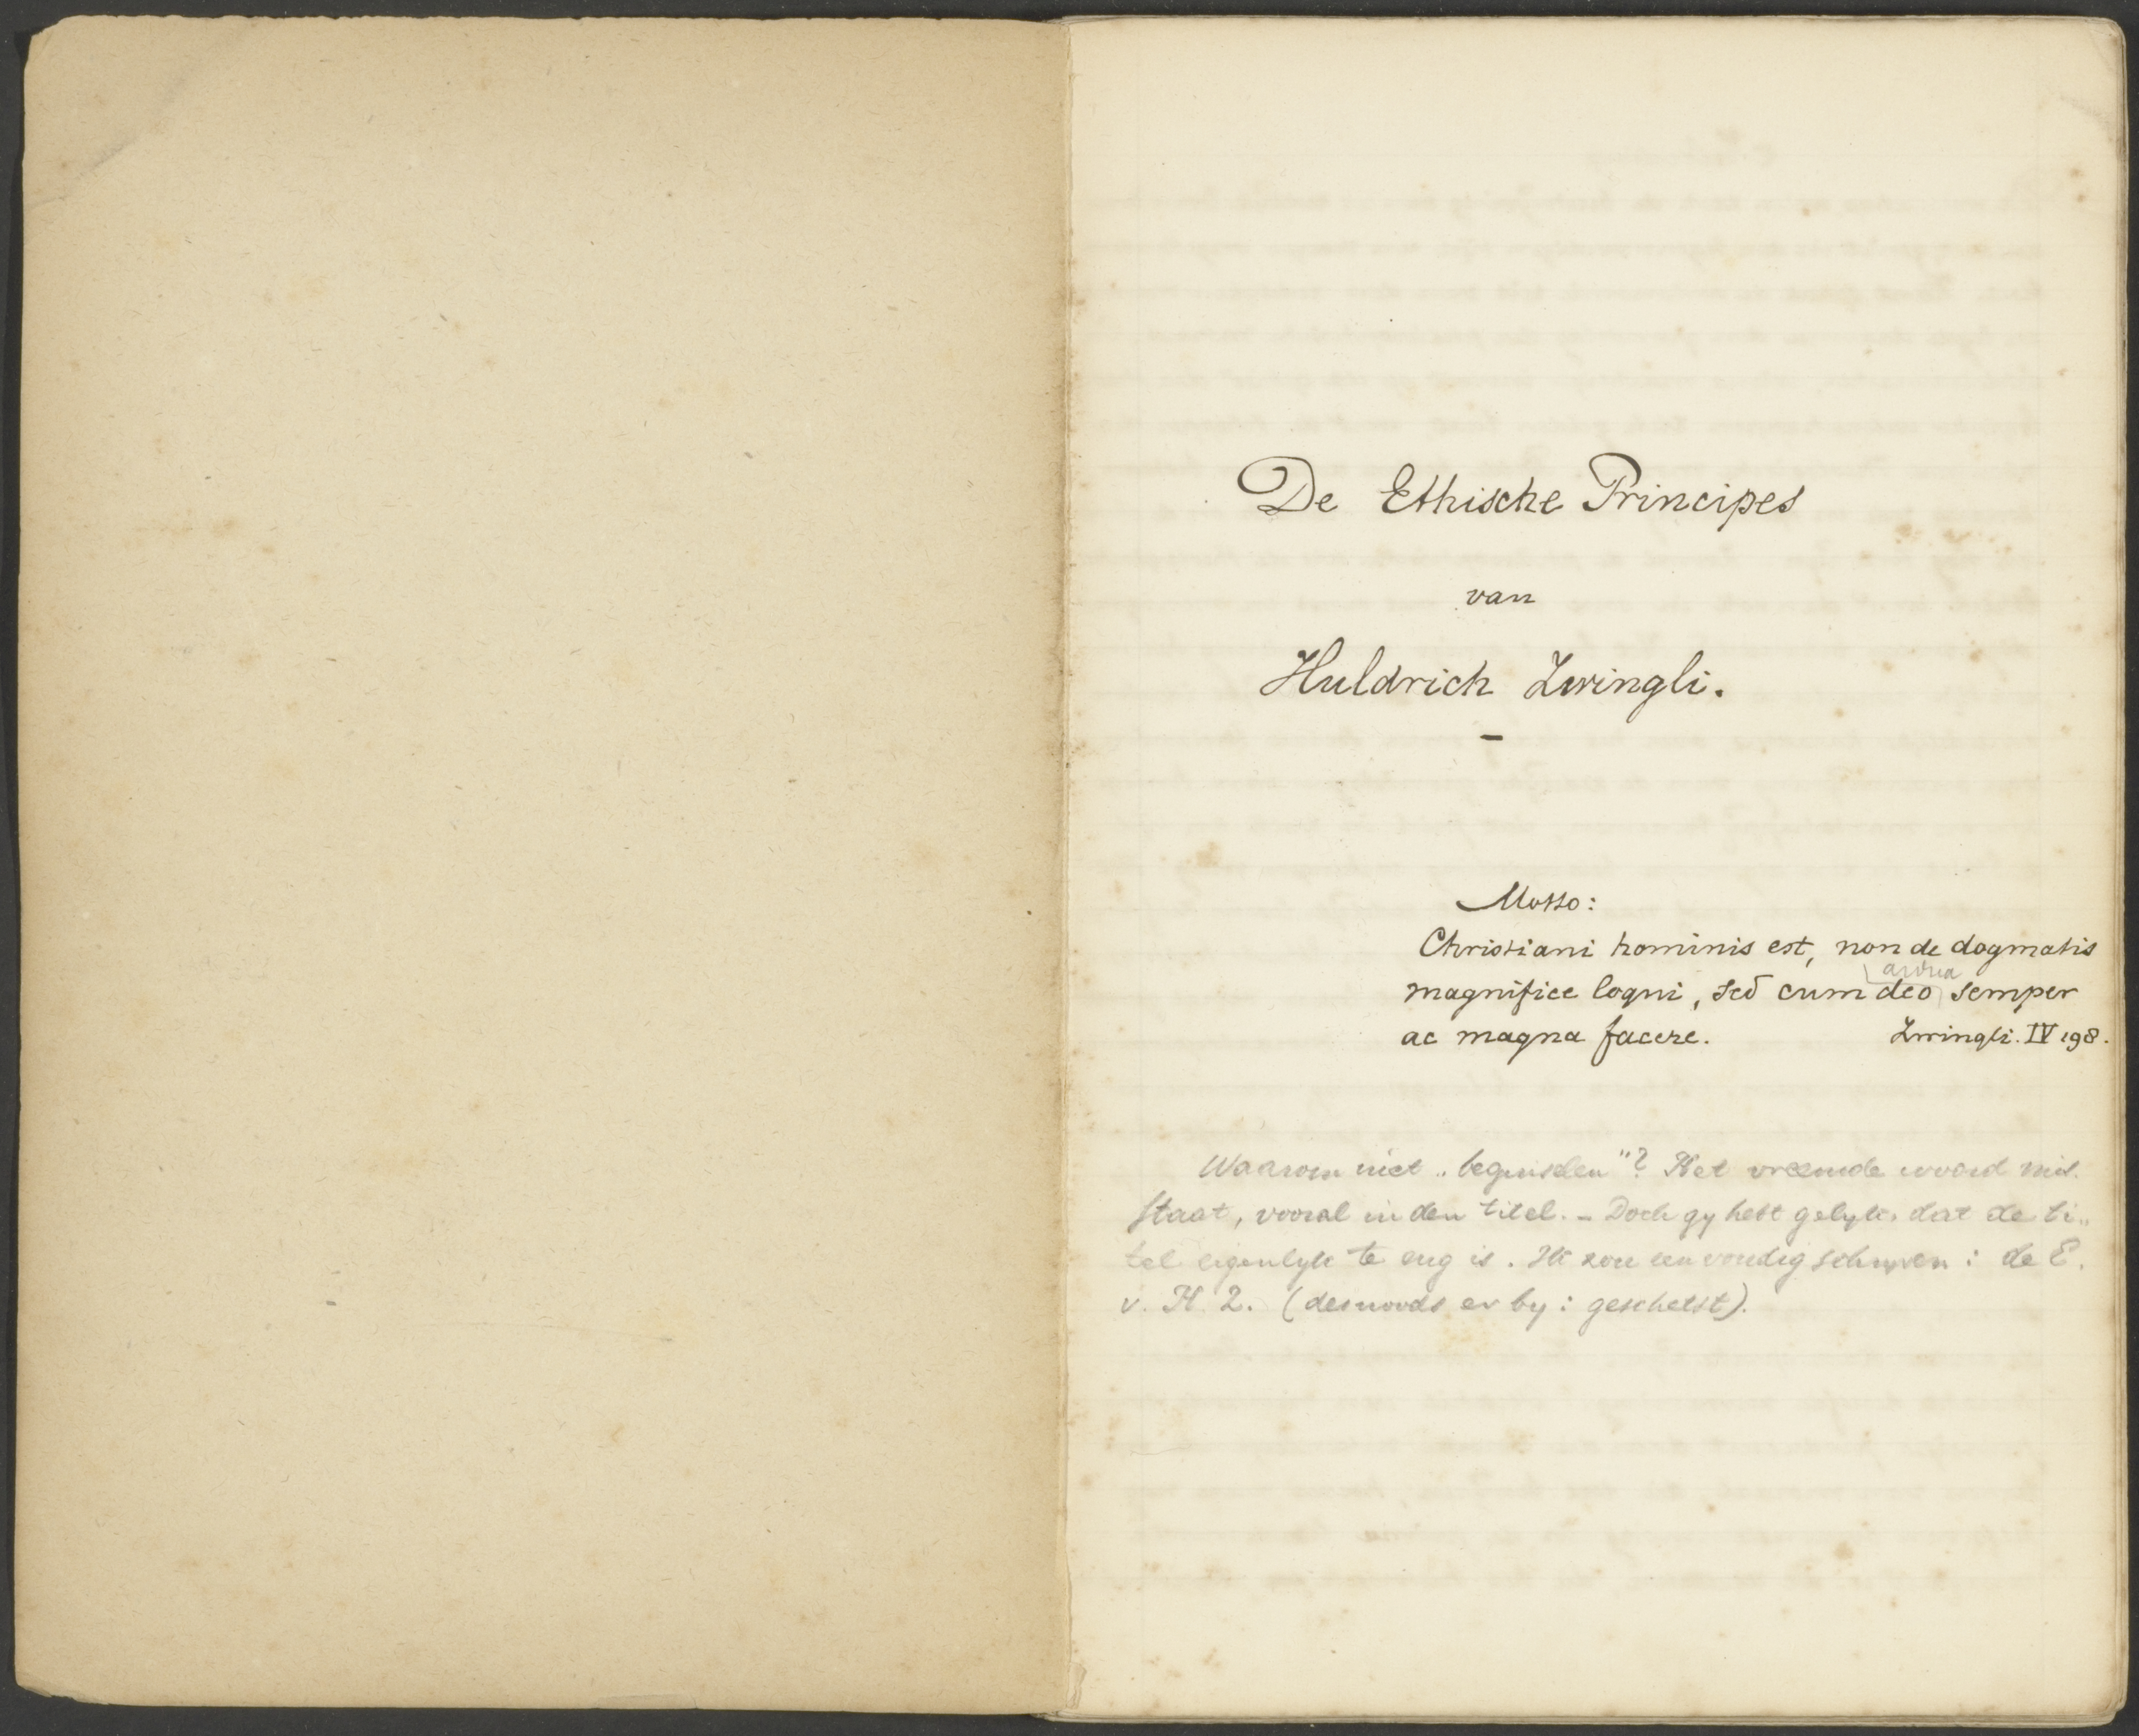 De Ethische Principes
van
Huldrich Zwingli.
–
Motto:
Christiani hominis est, non de dogmatis
ardua
magnifice loqui, sed cum deo semper
ac magna facere. Zwingli. IV 198.
Waarom niet „beginselen"? Het vreemde woord mis-
staat, vooral in den titel. – Doch gy hebt gelyk, dat de ti„
tel eigenlyk te eng is. Ik zou eenvoudig schryven: de E.
v. H. Z. (desnoods er by: geschetst).